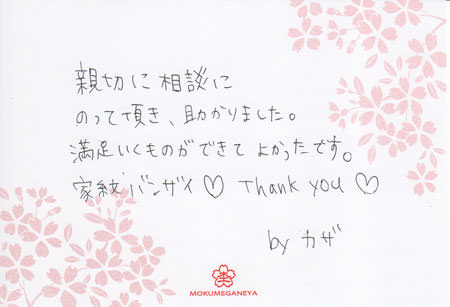 親切に相談に
のって頂き、助かりました。
満足いくものができてよかったです。
家紋バンザイ♡ Thank you♡
by カザ
MOKUMEGANEYA